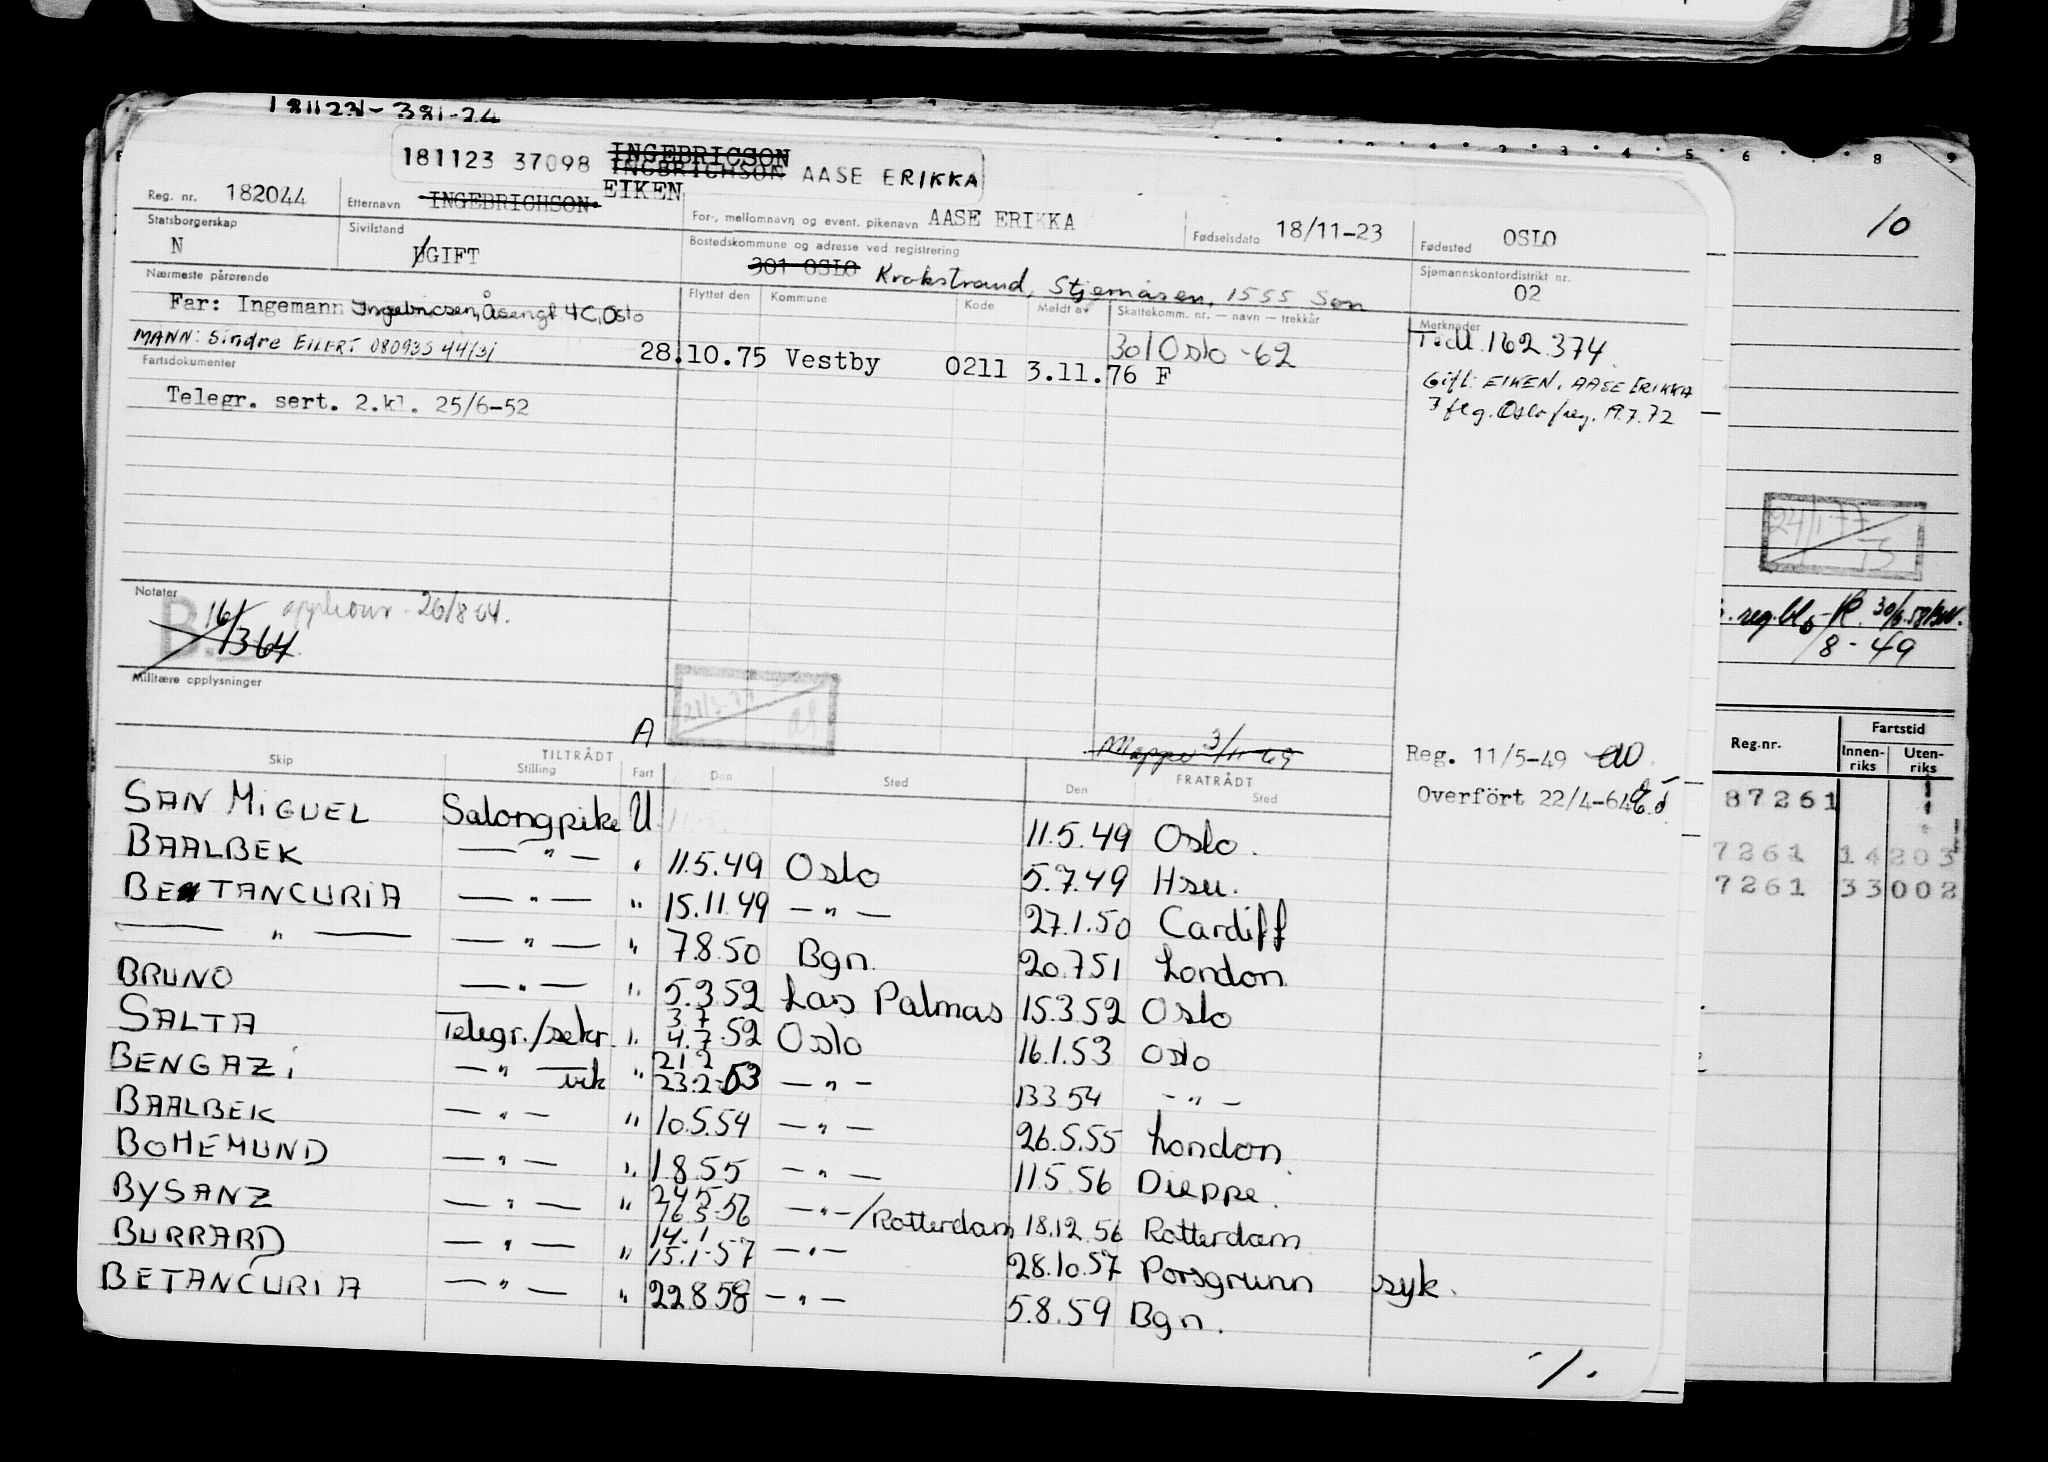 181123-381-24
181123 37098 INGEBRICSON INGBRICHSON AASE ERIKKA
Reg. nr. 182044 Etternavn INGEBRICHSON EIKEN For-, mellomnavn og event. pikenavn AASE ERIKKA Fødselsdato 18/11-23 Fødested OSLO
Statsborgerskap N Sivilstand UGIFT Bostedskommune og adresse ved registrering 301 OSLO Krokstrand, Stjernåsen, 1555 Son Sjømannskontordistrikt nr. 02
Nærmeste pårørende Flyttet den Kommune Kode Meldt av Skattekomm. nr. — navn — trekkår Merknader
Far: Ingemann Ingebricsen, Åsengt 4C, Oslo 301 Oslo -62 T.dl. 162.374
MANN: Sindre EILERT 080935 44131 28.10.75 Vestby 0211 3.11.76 F
Gift: EIKEN, AASE ERIKKA
3 flg. Oslo freg. 19.7.72
Fartsdokumenter
Telegr. sert. 2.kl. 25/6-52
Notater
B. 16/3 64 26/8 64.
Militære opplysninger
21/3-77
A
Mappe 3/11-69
Reg. 11/5-49
Overfört 22/4-64
Skip TILTRÅDT Stilling Fart Den Sted FRATRÅDT Den Sted
SAN MIGUEL Salongpike U 11.5.49 Oslo.
BAALBEK — " — " 11.5.49 Oslo 5.7.49 Hsu.
BETANCURIA — " — " 15.11.49 — " — 27.1.50 Cardiff
— " — — " — " 7.8.50 Bgn. 20.7.51 London
BRUNO — " — " 5.3.52 Las Palmas 15.3.52 Oslo
SALTA Telegr./sekr. " 3.7 4.7.52 Oslo 16.1.53 Oslo
BENGAZI — " — vik " 21.2 23.2-53 — " — 13.3.54 — " —
BAALBEK — " — " 10.5.54 — " — 26.5.55 London.
BOHEMUND — " — " 1.8.55 — " — 11.5.56 Dieppe.
BYSANZ — " — " 24.5 26.5-56 — " —/Rotterdam 18.12.56 Rotterdam
BURRARD — " — " 14.1 15.1-57 — " — 28.10.57 Porsgrunn syk.
BETANCURIA — " — " 22.8.58 — " — 5.8.59 Bgn.
-/.
5 6 7 8 9
10
24/1-77
reg.bl.
8-49
Reg.nr. Fartstid
Innen-riks Uten-riks
87261
7261 14203
7261 33002